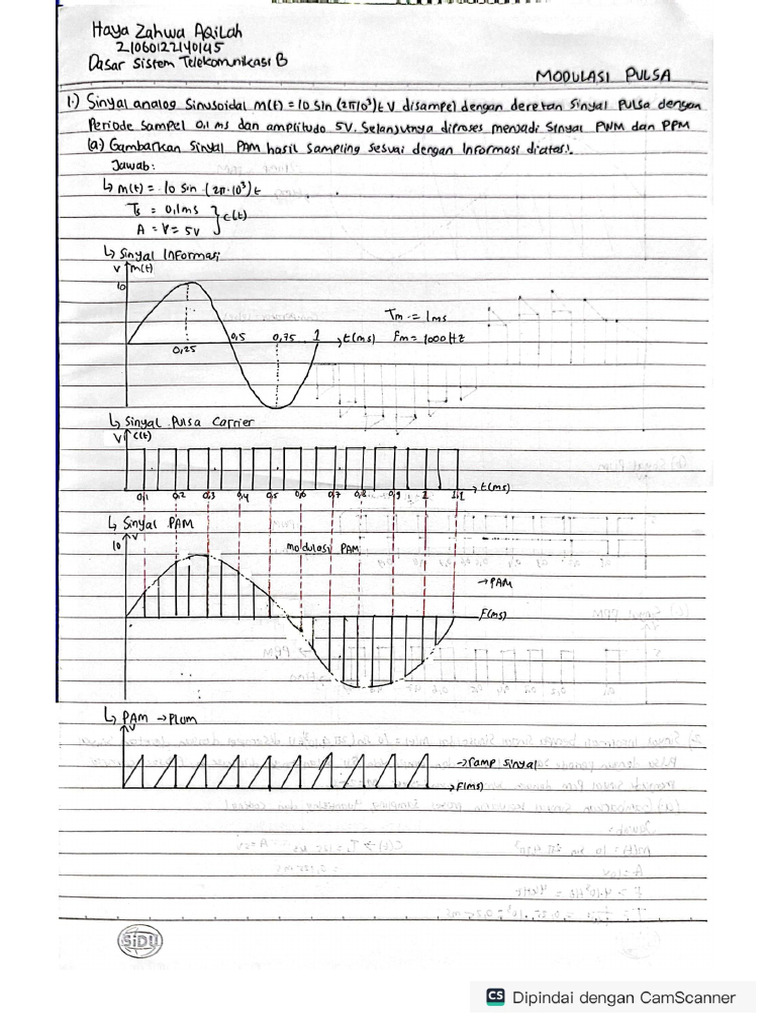 Haya Zahwa Aqilah
21060122140145
Dasar Sistem Telekomunikasi B
MODULASI PULSA
1.) Sinyal analog Sinusoidal m(t) = 10 sin (2π10³)t V disampel dengan deretan sinyal pulsa dengan
Periode sampel 0,1 ms dan amplitudo 5V. Selanjutnya diproses menjadi sinyal PWM dan PPM
(a) Gambarkan Sinyal PAM hasil sampling sesuai dengan Informasi diatas!.
Jawab:
↳ m(t) = 10 sin (2π·10³)t
Ts = 0,1ms } c(t)
A = V = 5V
↳ Sinyal Informasi
V m(t)
10
Tm = 1ms
0,5 0,75 1 t(ms) Fm = 1000Hz
0,25
↳ Sinyal Pulsa Carrier
V c(t)
t(ms)
0,1 0,2 0,3 0,4 0,5 0,6 0,7 0,8 0,9 1 1,1
↳ Sinyal PAM
V
10
modulasi PAM
→PAM
F(ms)
↳ PAM → PWM
V
→ramp sinyal
F(ms)
SIDU
CS Dipindai dengan CamScanner